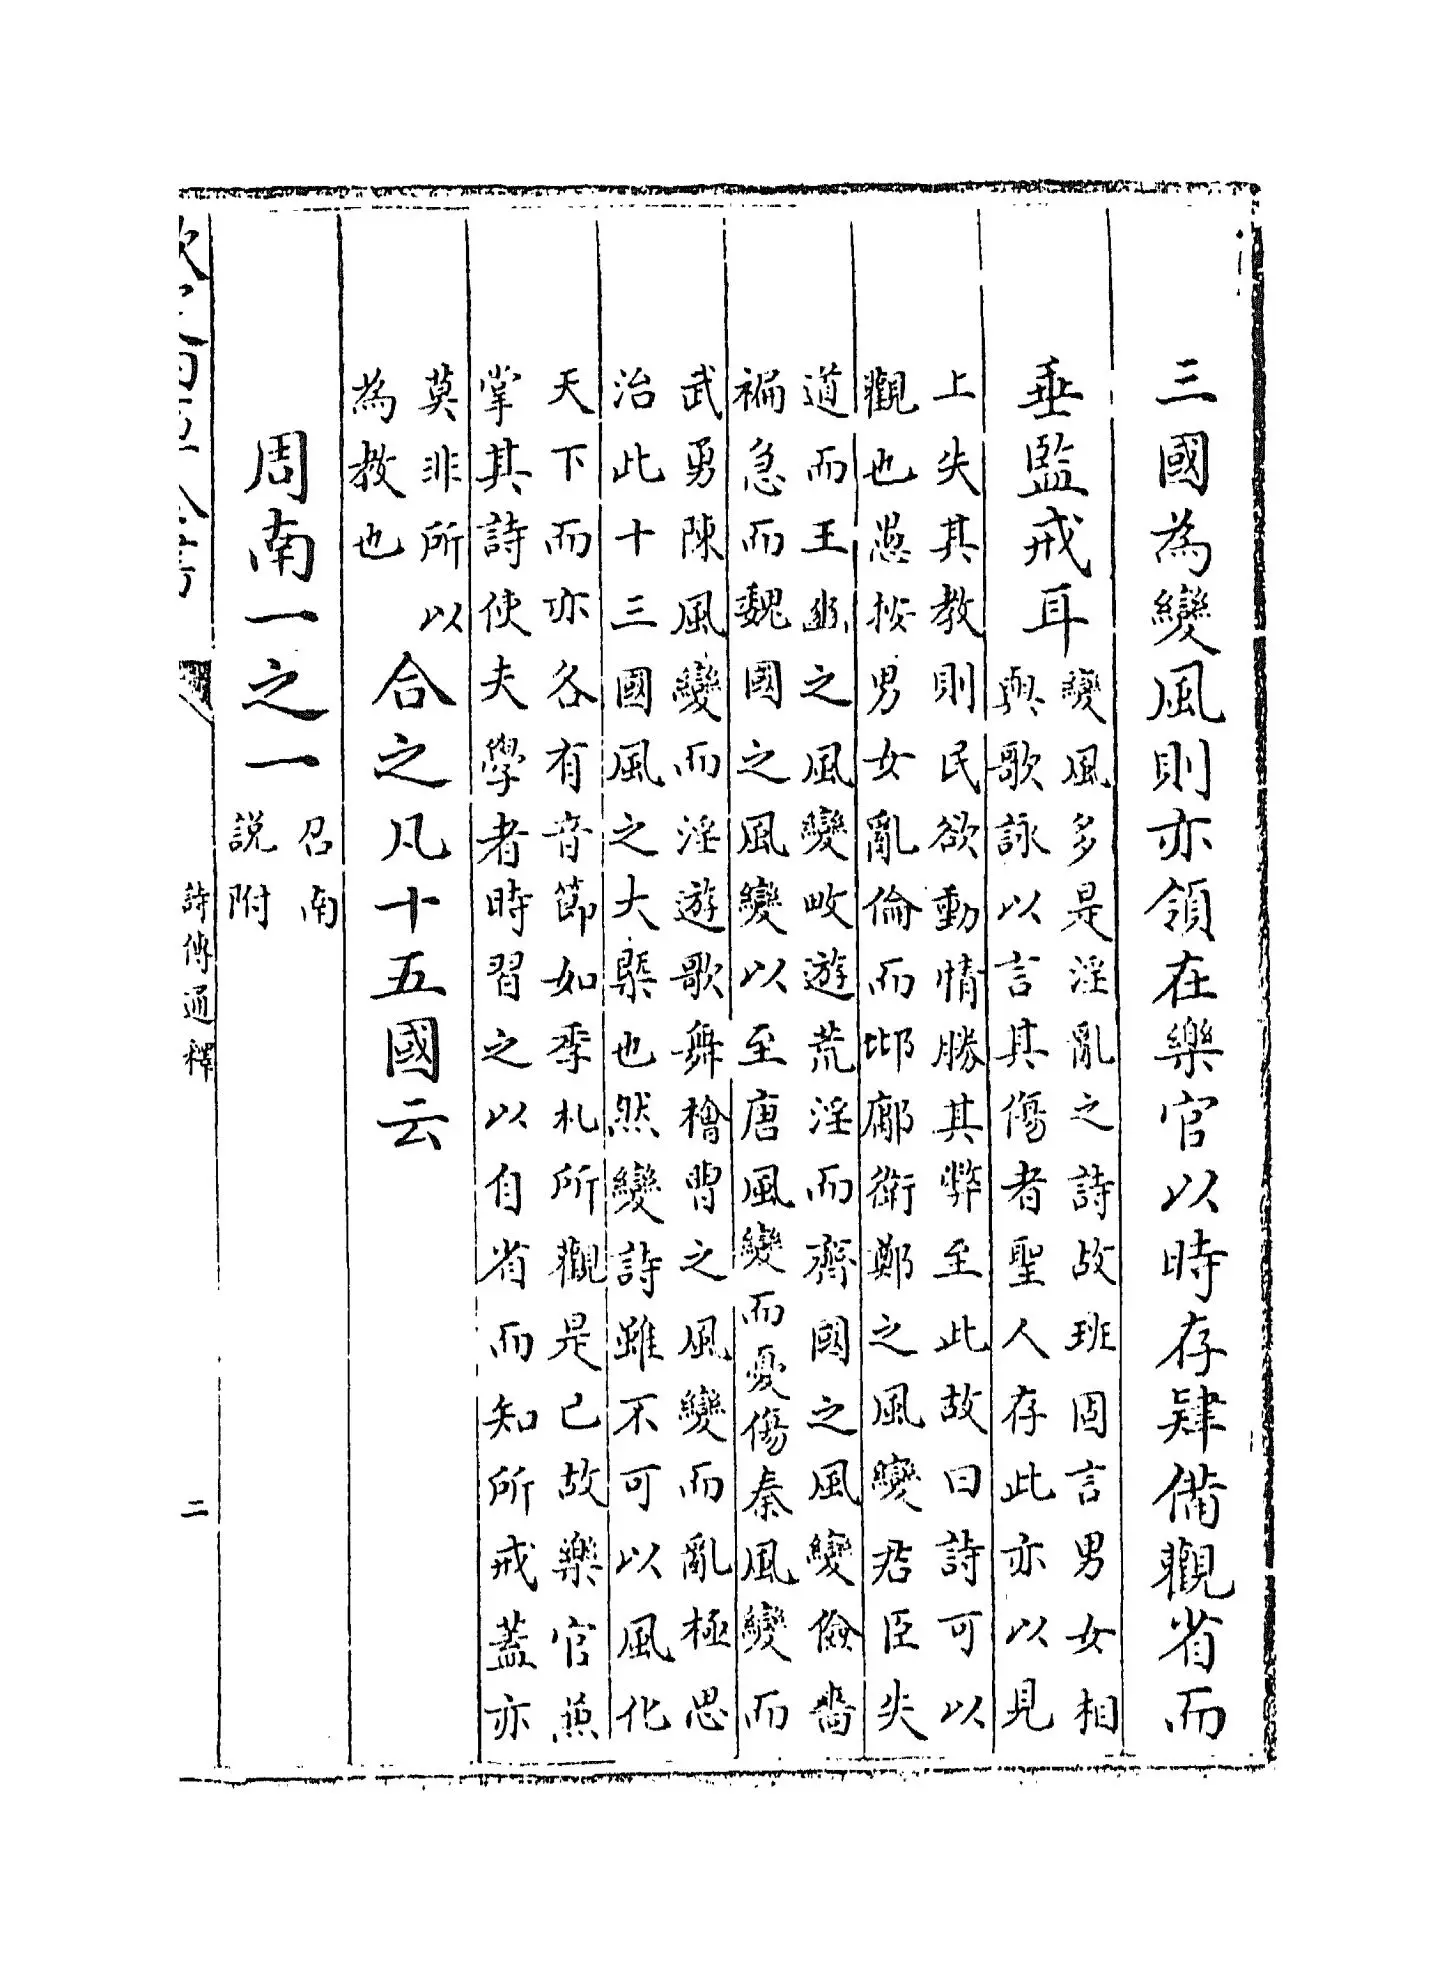 三國為變風則亦領在樂官以時存肄備觀省而
垂監戒耳
變風多是淫亂之詩故班固言男女相
與歌詠以言其傷者聖人存此亦以見
上失其教則民欲動情勝其弊至此故曰詩可以
觀也愚按男女亂倫而邶鄘衛鄭之風變君臣失
道而王豳之風變畋遊荒淫而齊國之風變儉嗇
褊急而魏國之風變以至唐風變而憂傷秦風變而
武勇陳風變而淫遊歌舞檜曹之風變而亂極思
治此十三國風之大槩也然變詩雖不可以風化
天下而亦各有音節如季札所觀是已故樂官兼
掌其詩使夫學者時習之以自省而知所戒蓋亦
莫非所以
為教也
合之凡十五國云
周南一之一
召南
說附
欽定四庫全書
詩傳通釋
二